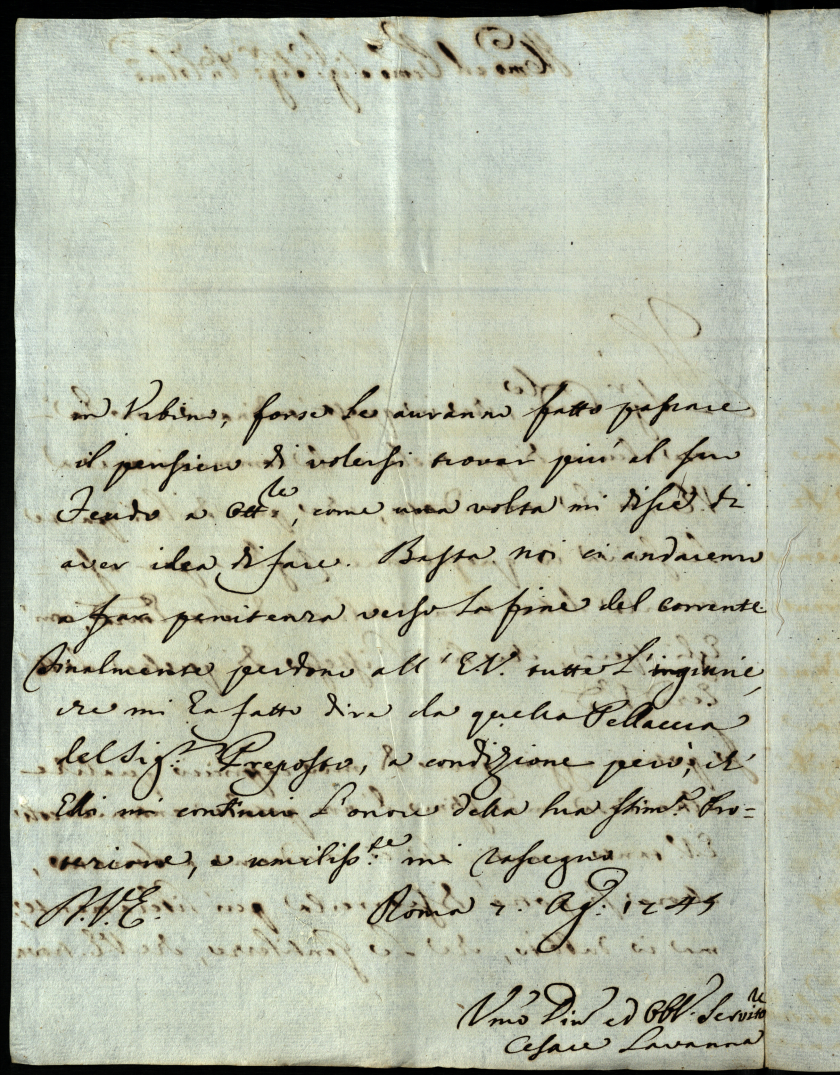 in Urbino, forse Le auranno fatto passare
il pensiero di volersi trovar più al suo
Feudo a Ott.re, come una volta mi disse di
aver idea di fare. Basta noi ci andaremo
a far penitenza verso la fine del corrente
Finalmente perdono all'E.V. tutte L'ingiurie,
che mi ha fatto dire da quella Pellaccia
del Sig.r Preposto, a condizione però, ch'
Ella mi continui L'onore della sua stim.ma Pro=
tezione, e umiliss.te mi rassegno
D.V.E. Roma 7. Ag.o 1745
Vmo Dino ed Obbl. Servito.re
Cesare Lavanna